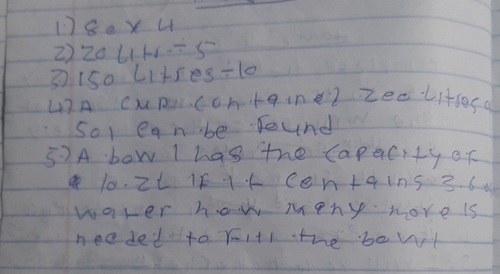 1) 80 x 4
2) 20 Litr ÷ 5
3) 150 Litres ÷ 10
4) A contained 200 Litres
50 l can be found
5) A bowl has the capacity of
10.2l if it contains 3.6
water how many more is
needed to fill the bowl